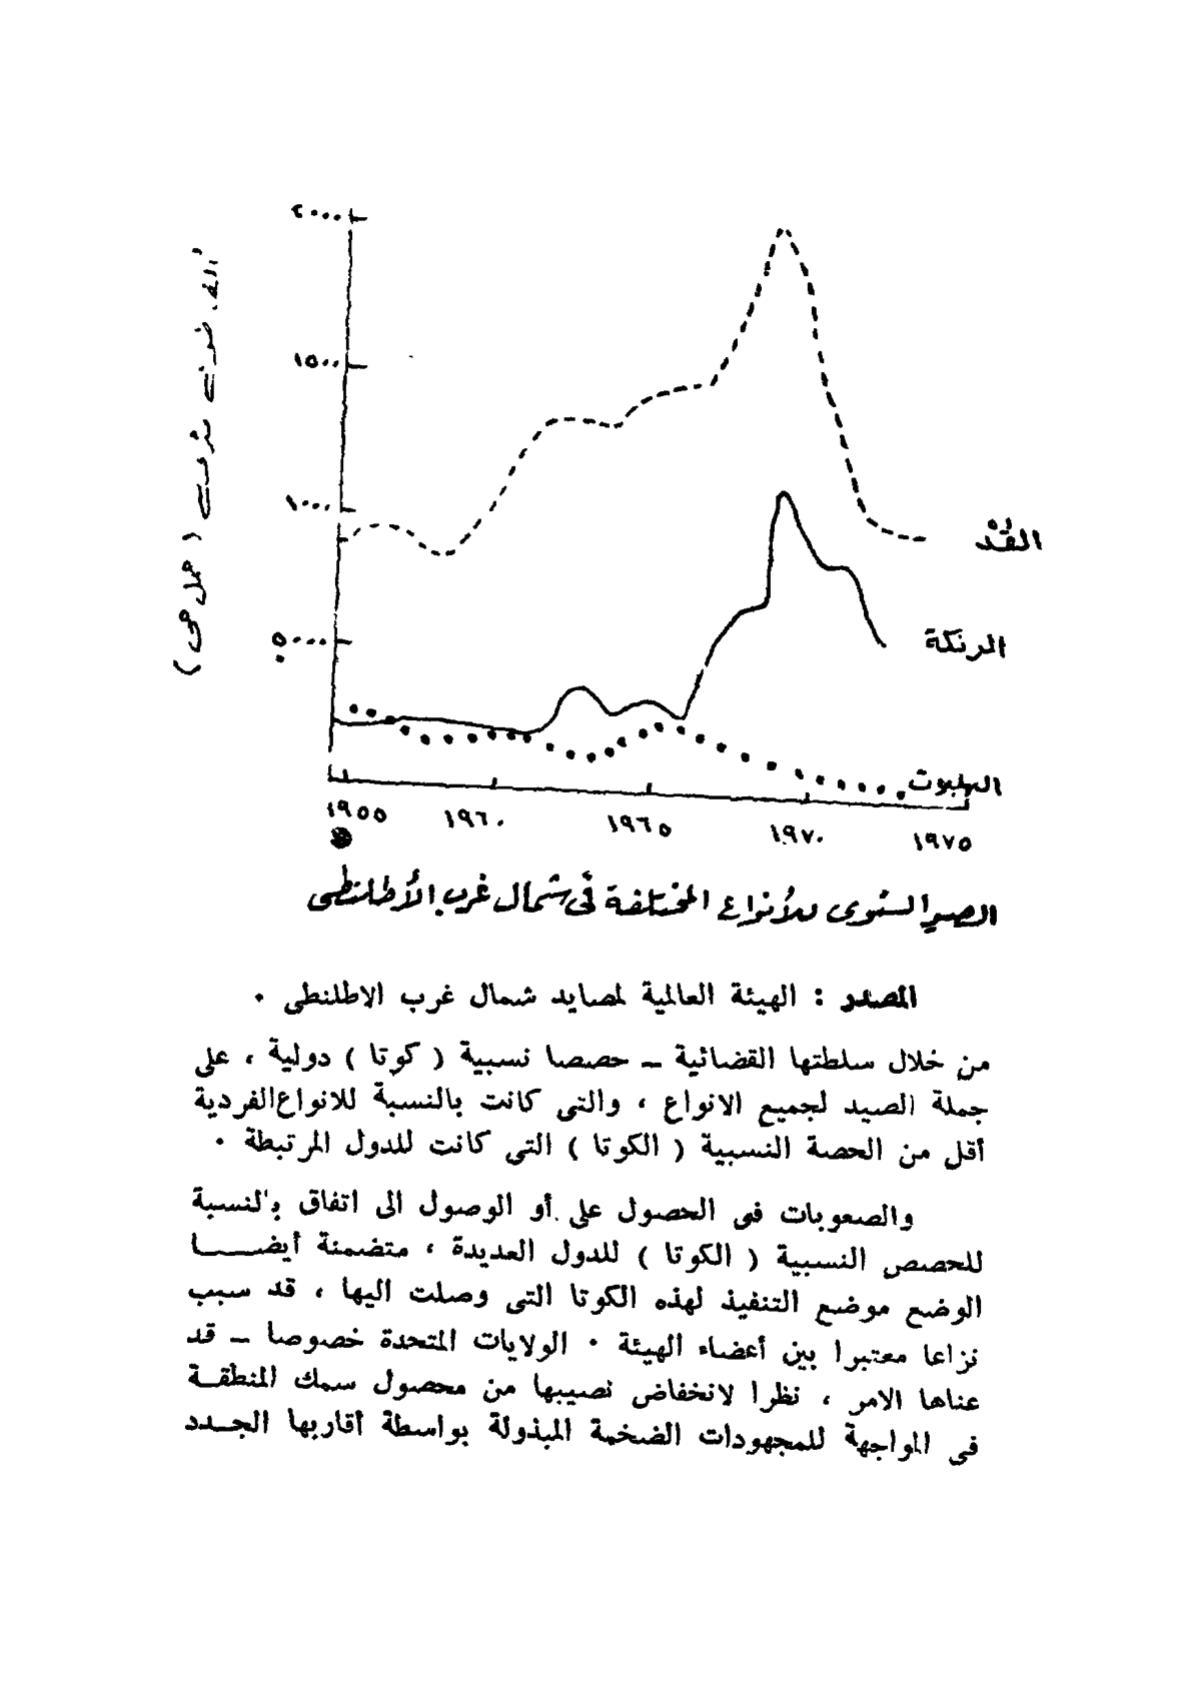 ٢٠٠٠
١٥٠٠
١٠٠٠
٥٠٠
طن مترى (حمل حى)
القُدّ
الرنكة
الهلبوت
١٩٥٥ ١٩٦٠ ١٩٦٥ ١٩٧٠ ١٩٧٥
الصيد السنوى للأنواع المختلفة فى شمال غرب الأطلنطى
المصدر : الهيئة العالمية لمصايد شمال غرب الاطلنطى ٠
من خلال سلطتها القضائية – حصصا نسبية ( كوتا ) دولية ، على
جملة الصيد لجميع الانواع ، والتى كانت بالنسبة للانواع الفردية
أقل من الحصة النسبية ( الكوتا ) التى كانت للدول المرتبطة ٠
والصعوبات فى الحصول على أو الوصول الى اتفاق بالنسبة
للحصص النسبية ( الكوتا ) للدول العديدة ، متضمنة أيضـــا
الوضع موضع التنفيذ لهذه الكوتا التى وصلت اليها ، قد سبب
نزاعا معتبرا بين أعضاء الهيئة ٠ الولايات المتحدة خصوصا – قد
عناها الامر ، نظرا لانخفاض نصيبها من محصول سمك المنطقـة
فى المواجهة للمجهودات الضخمة المبذولة بواسطة أقاربها الجـدد